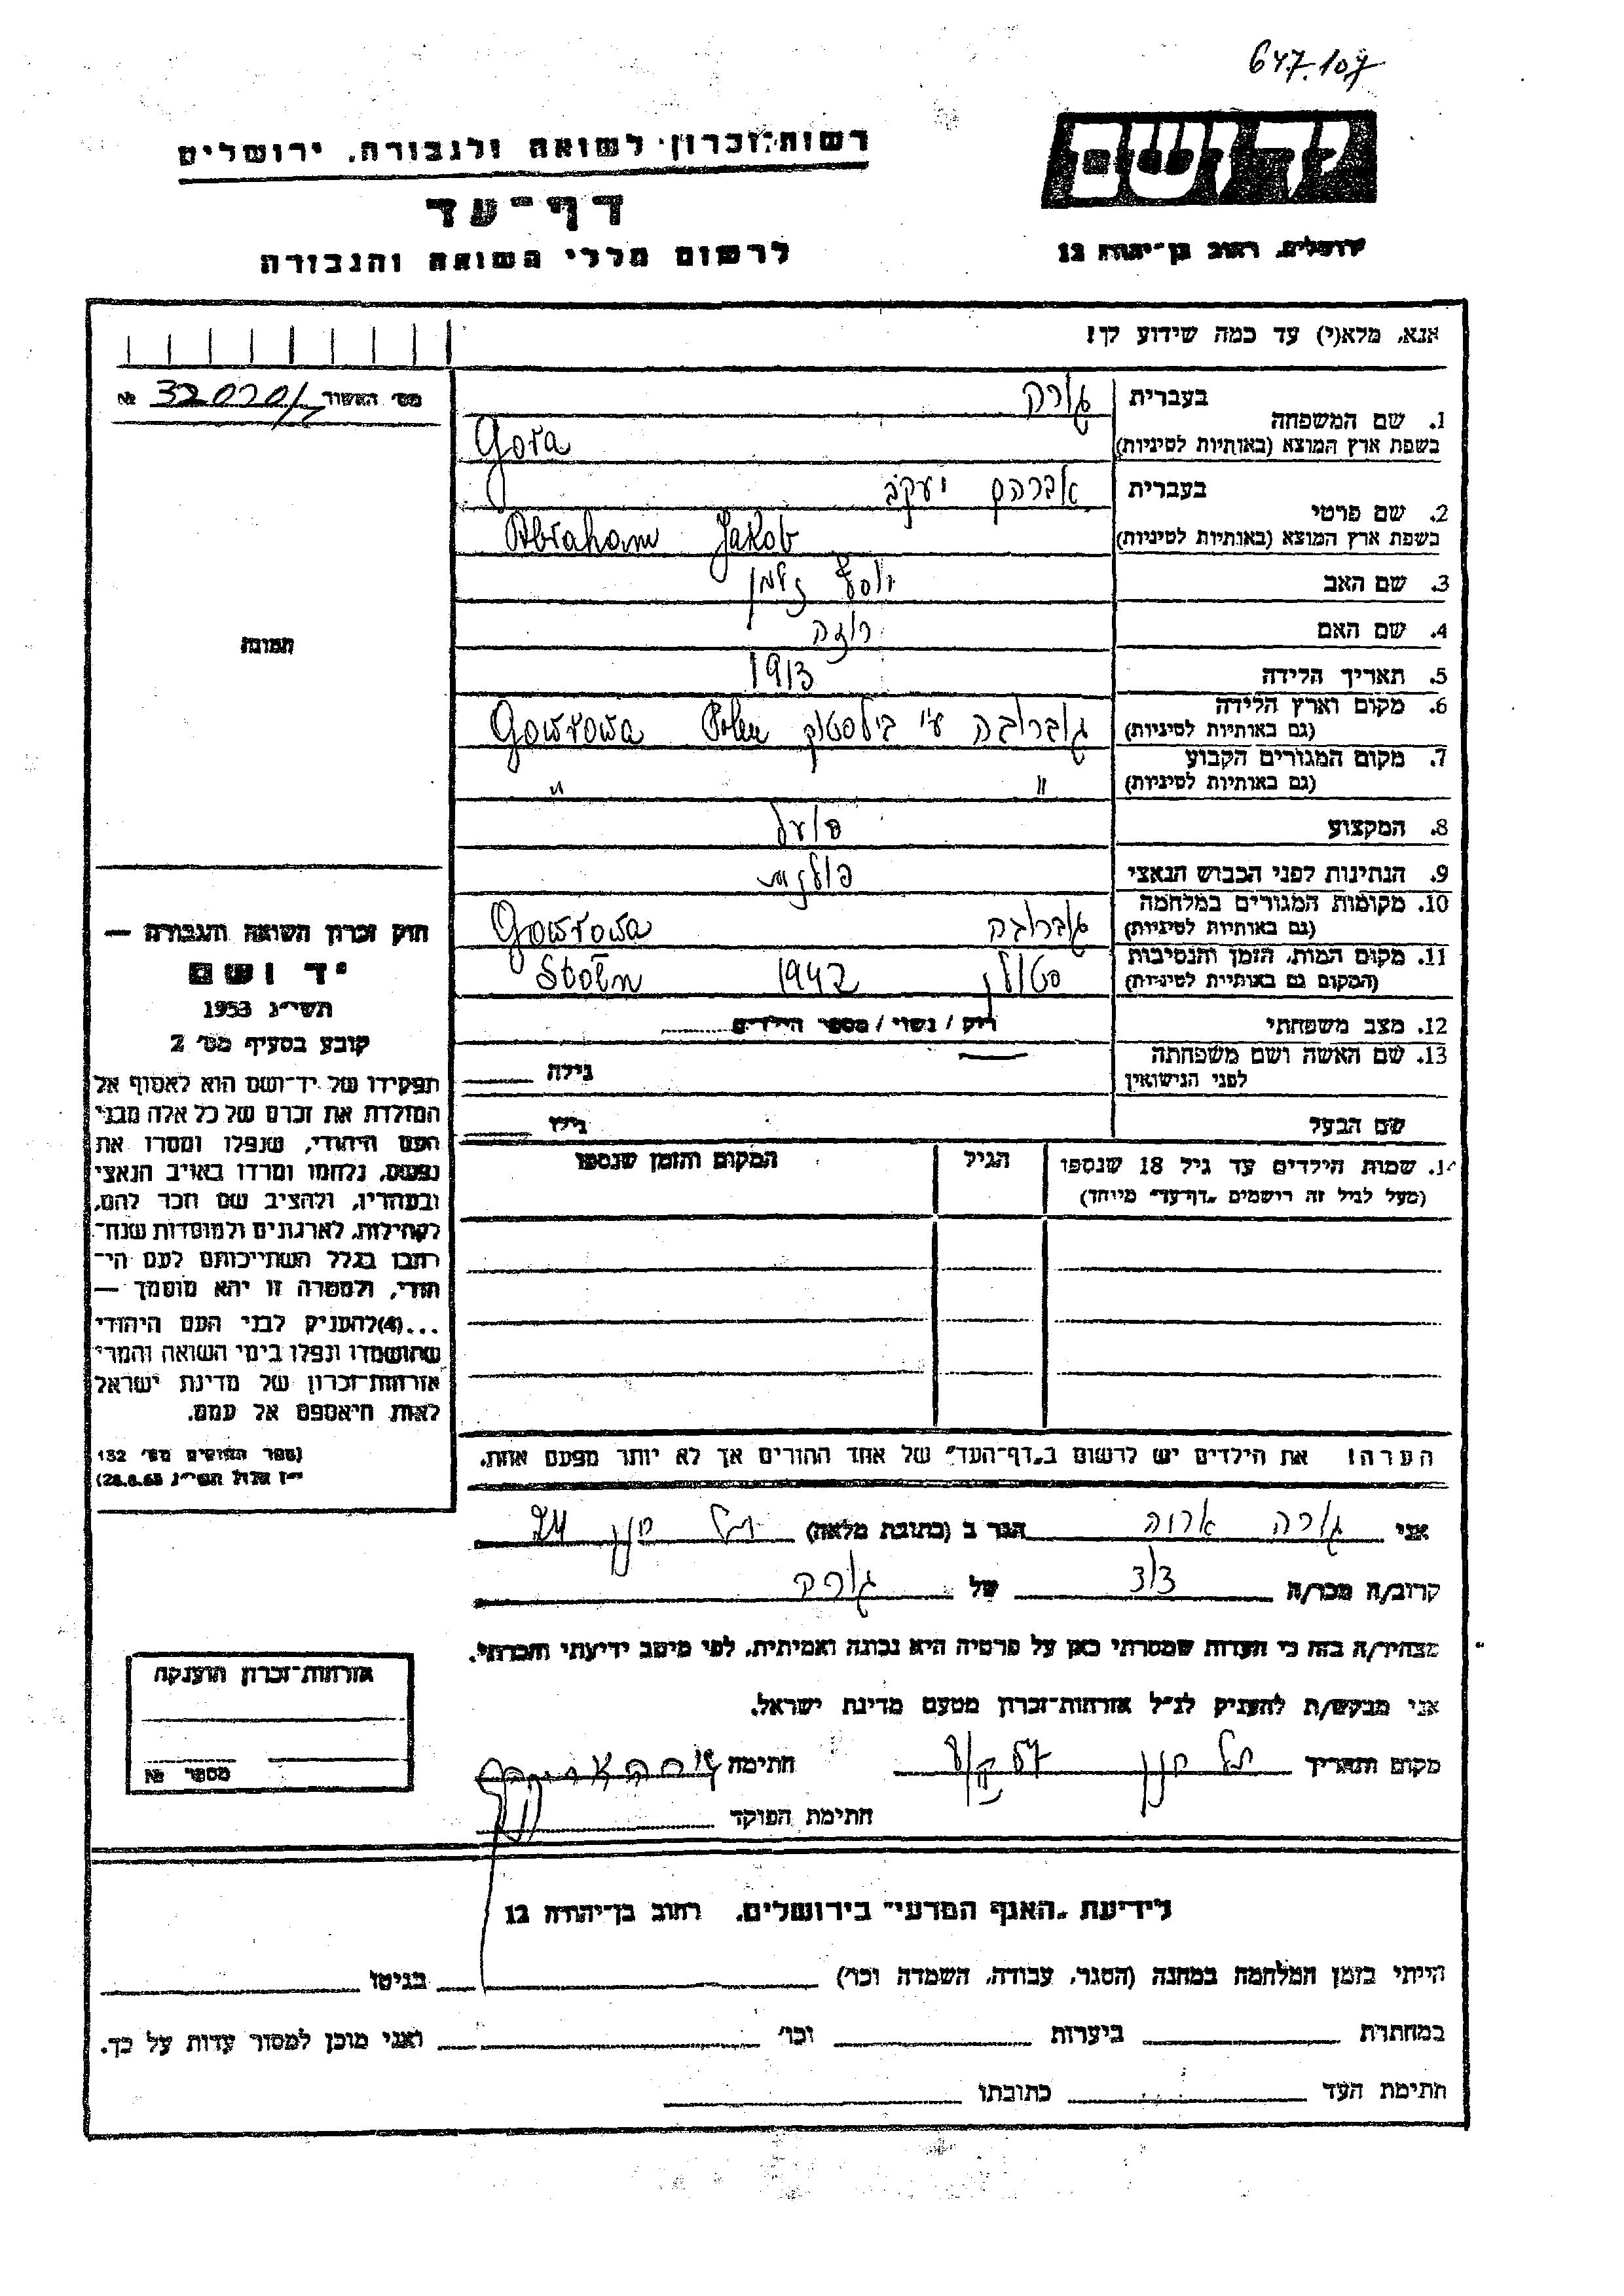 647.107
יד ושם
ירושלים, רחוב בן־יהודה 12
רשות־זכרון לשואה ולגבורה, ירושלים
דף־עד
לרשום חללי השואה והגבורה
אנא, מלא(י) עד כמה שידוע לך!
מס׳ האשור № 32020/
בעברית גורה
1. שם המשפחה
בשפת ארץ המוצא (באותיות לטיניות) Gora
בעברית אברהם יעקב
2. שם פרטי
בשפת ארץ המוצא (באותיות לטיניות) Abraham Jakob
3. שם האב יוסף זלמן
4. שם האם רוזה
5. תאריך הלידה 1913
6. מקום וארץ הלידה
(גם באותיות לטיניות) גוברובה ע״י בילסטוק Polen Gowrowa
7. מקום המגורים הקבוע
(גם באותיות לטיניות) " "
8. המקצוע פועל
9. הנתינות לפני הכבוש הנאצי פולנית
10. מקומות המגורים במלחמה
(גם באותיות לטיניות) גוברובה Gowrowa
11. מקום המות, הזמן והנסיבות
(המקום גם באותיות לטיניות) סטולין 1942 Stolin
12. מצב משפחתי רוק / נשוי / מספר הילדים
13. שם האשה ושם משפחתה
לפני הנישואין גילה
שם הבעל גילו
14. שמות הילדים עד גיל 18 שנספו הגיל המקום והזמן שנספו
(מעל לגיל זה רושמים „דף־עד״ מיוחד)
תמונה
חוק זכרון השואה והגבורה —
יד ושם
תשי״ג 1953
קובע בסעיף מס׳ 2
תפקידו של יד־ושם הוא לאסוף אל
המולדת את זכרם של כל אלה מבני
העם היהודי, שנפלו ומסרו את
נפשם, נלחמו ומרדו באויב הנאצי
ובעוזריו, ולהציב שם וזכר להם,
לקהילות, לארגונים ולמוסדות שנח־
רבו בגלל השתייכותם לעם הי־
הודי, ולמטרה זו יהא מוסמך —
...(4)להעניק לבני העם היהודי
שהושמדו ונפלו בימי השואה והמרי
אזרחות־זכרון של מדינת ישראל
לאות היאספם אל עמם.
(ספר החוקים מס׳ 132
י״ז אלול תשי״ג 28.8.53)
הערה! את הילדים יש לרשום ב„דף־העד״ של אחד ההורים אך לא יותר מפעם אחת.
אני גורה אריה הגר ב (כתובת מלאה) תל חנן 24
קרוב/ה מכר/ה של גורה
מצהיר/ה בזה כי העדות שמסרתי כאן על פרטיה היא נכונה ואמיתית, לפי מיטב ידיעתי והכרתי.
אני מבקש/ת להעניק לנ״ל אזרחות־זכרון מטעם מדינת ישראל.
מקום ותאריך תל חנן חתימה
חתימת הפוקד
אזרחות־זכרון הוענקה
מספר №
לידיעת „האגף המדעי״ בירושלים, רחוב בן־יהודה 12
הייתי בזמן המלחמה במחנה (הסגר, עבודה, השמדה וכו׳) בגיטו
במחתרת ביערות וכו׳ ואני מוכן למסור עדות על כך.
חתימת העד כתובתו